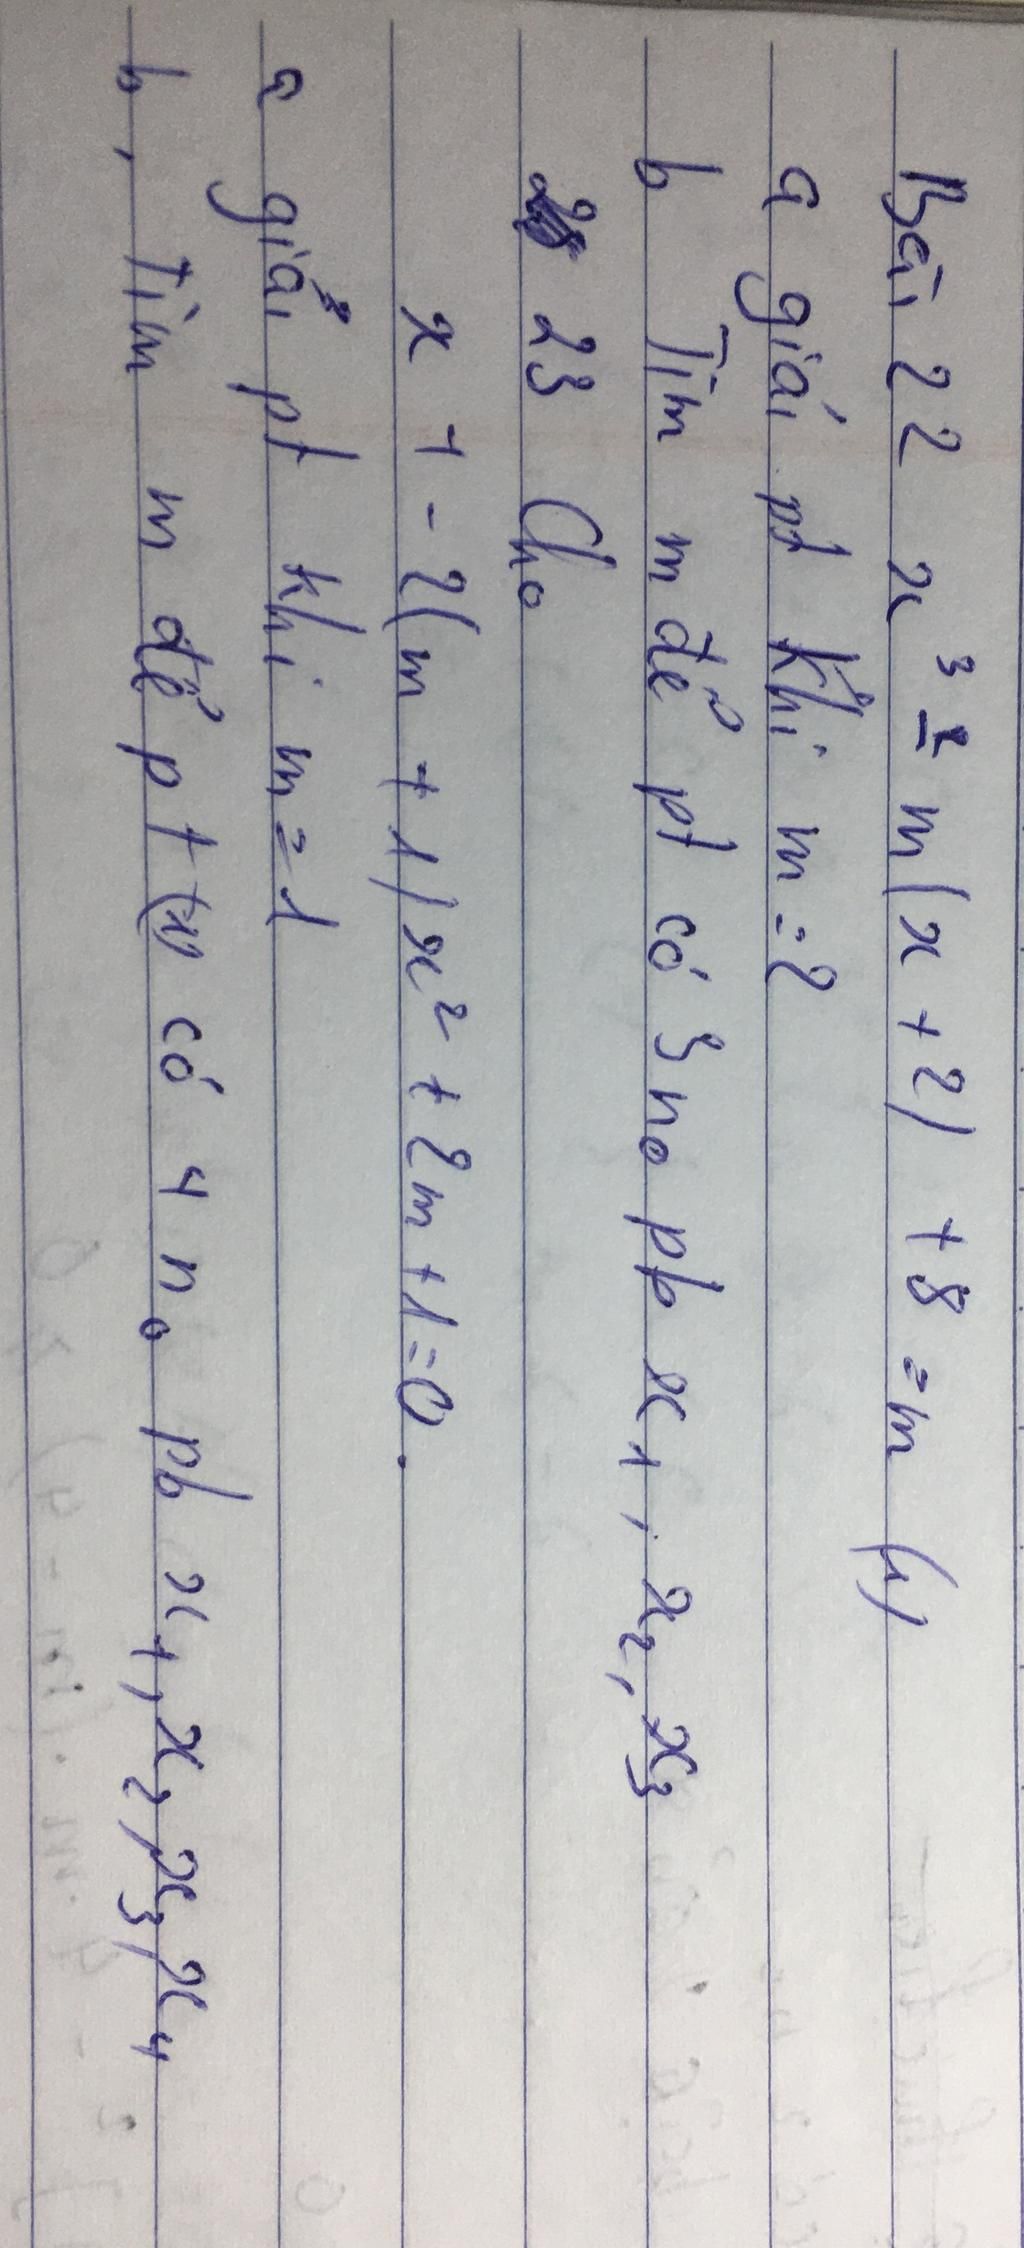 Bài 22 x³ - m(x + 2) + 8 = m (1)
a giải pt khi m = 2
b Tìm m để pt có 3 no pb x1, x2, x3
23 Cho
x 4 - 2(m + 1)x² + 2m + 1 = 0.
a giải pt khi m = 1
b, Tìm m để pt (1) có 4 no pb x1, x2, x3, x4